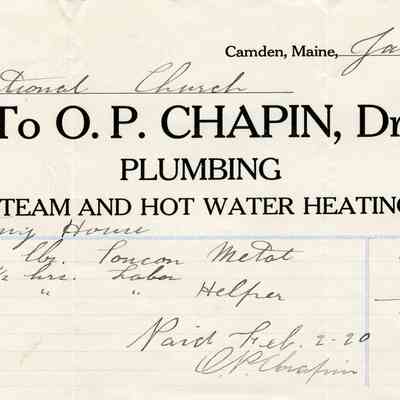 Camden, Maine, Ja
tional Church
To O. P. CHAPIN, Dr
PLUMBING
TEAM AND HOT WATER HEATING
House
½ lbs. Poncon Metal
½ hrs. Labor
" " Helper
Paid Feb. 2-20
O.P. Chapin